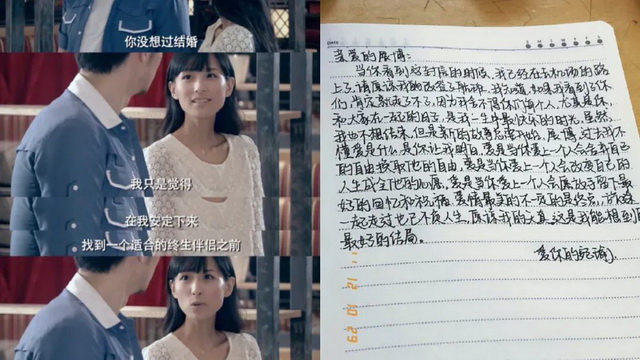 你没想过结婚
我只是觉得
在我安定下来
找到一个适合的终生伴侣之前
DATE
亲爱的展博:
当你看到这封信的时候,我已经在去机场的路
上了,请原谅我的改签了航班,我知道,如果我看到了你
们,肯定就走不了了,因为我舍不得你们每个人,尤其是你,
和大家在一起的日子,是我一生中最快乐的时光。虽然
我也不想结束,但是新的故事总要开始,展博,过去我不
懂爱是什么,是你让我明白,爱是当你爱上一个人会舍弃自己
的自由换取他的自由,爱是当你爱上一个人会改变自己的
人生成全他的心愿,爱是当你爱上一个人会愿意留下最
好的回忆和祝福,爱情最美的不一定的是终点,
一起走过也已不负人生,原谅我的天真,这是我能想到
最好的结局。
爱你的宛瑜
12 10:29